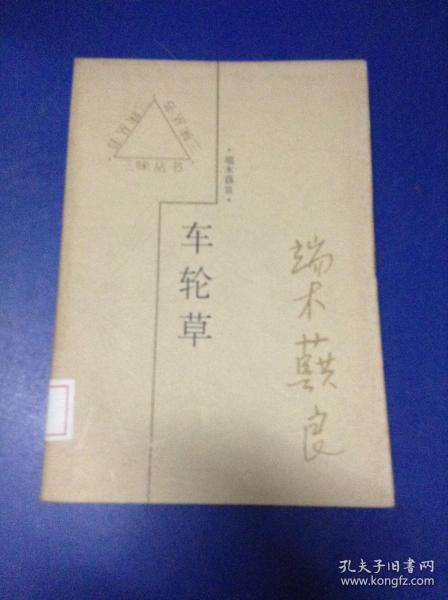 三味丛书
·端木蕻良·
车轮草
端木蕻良
孔夫子旧书网
www.kongfz.com